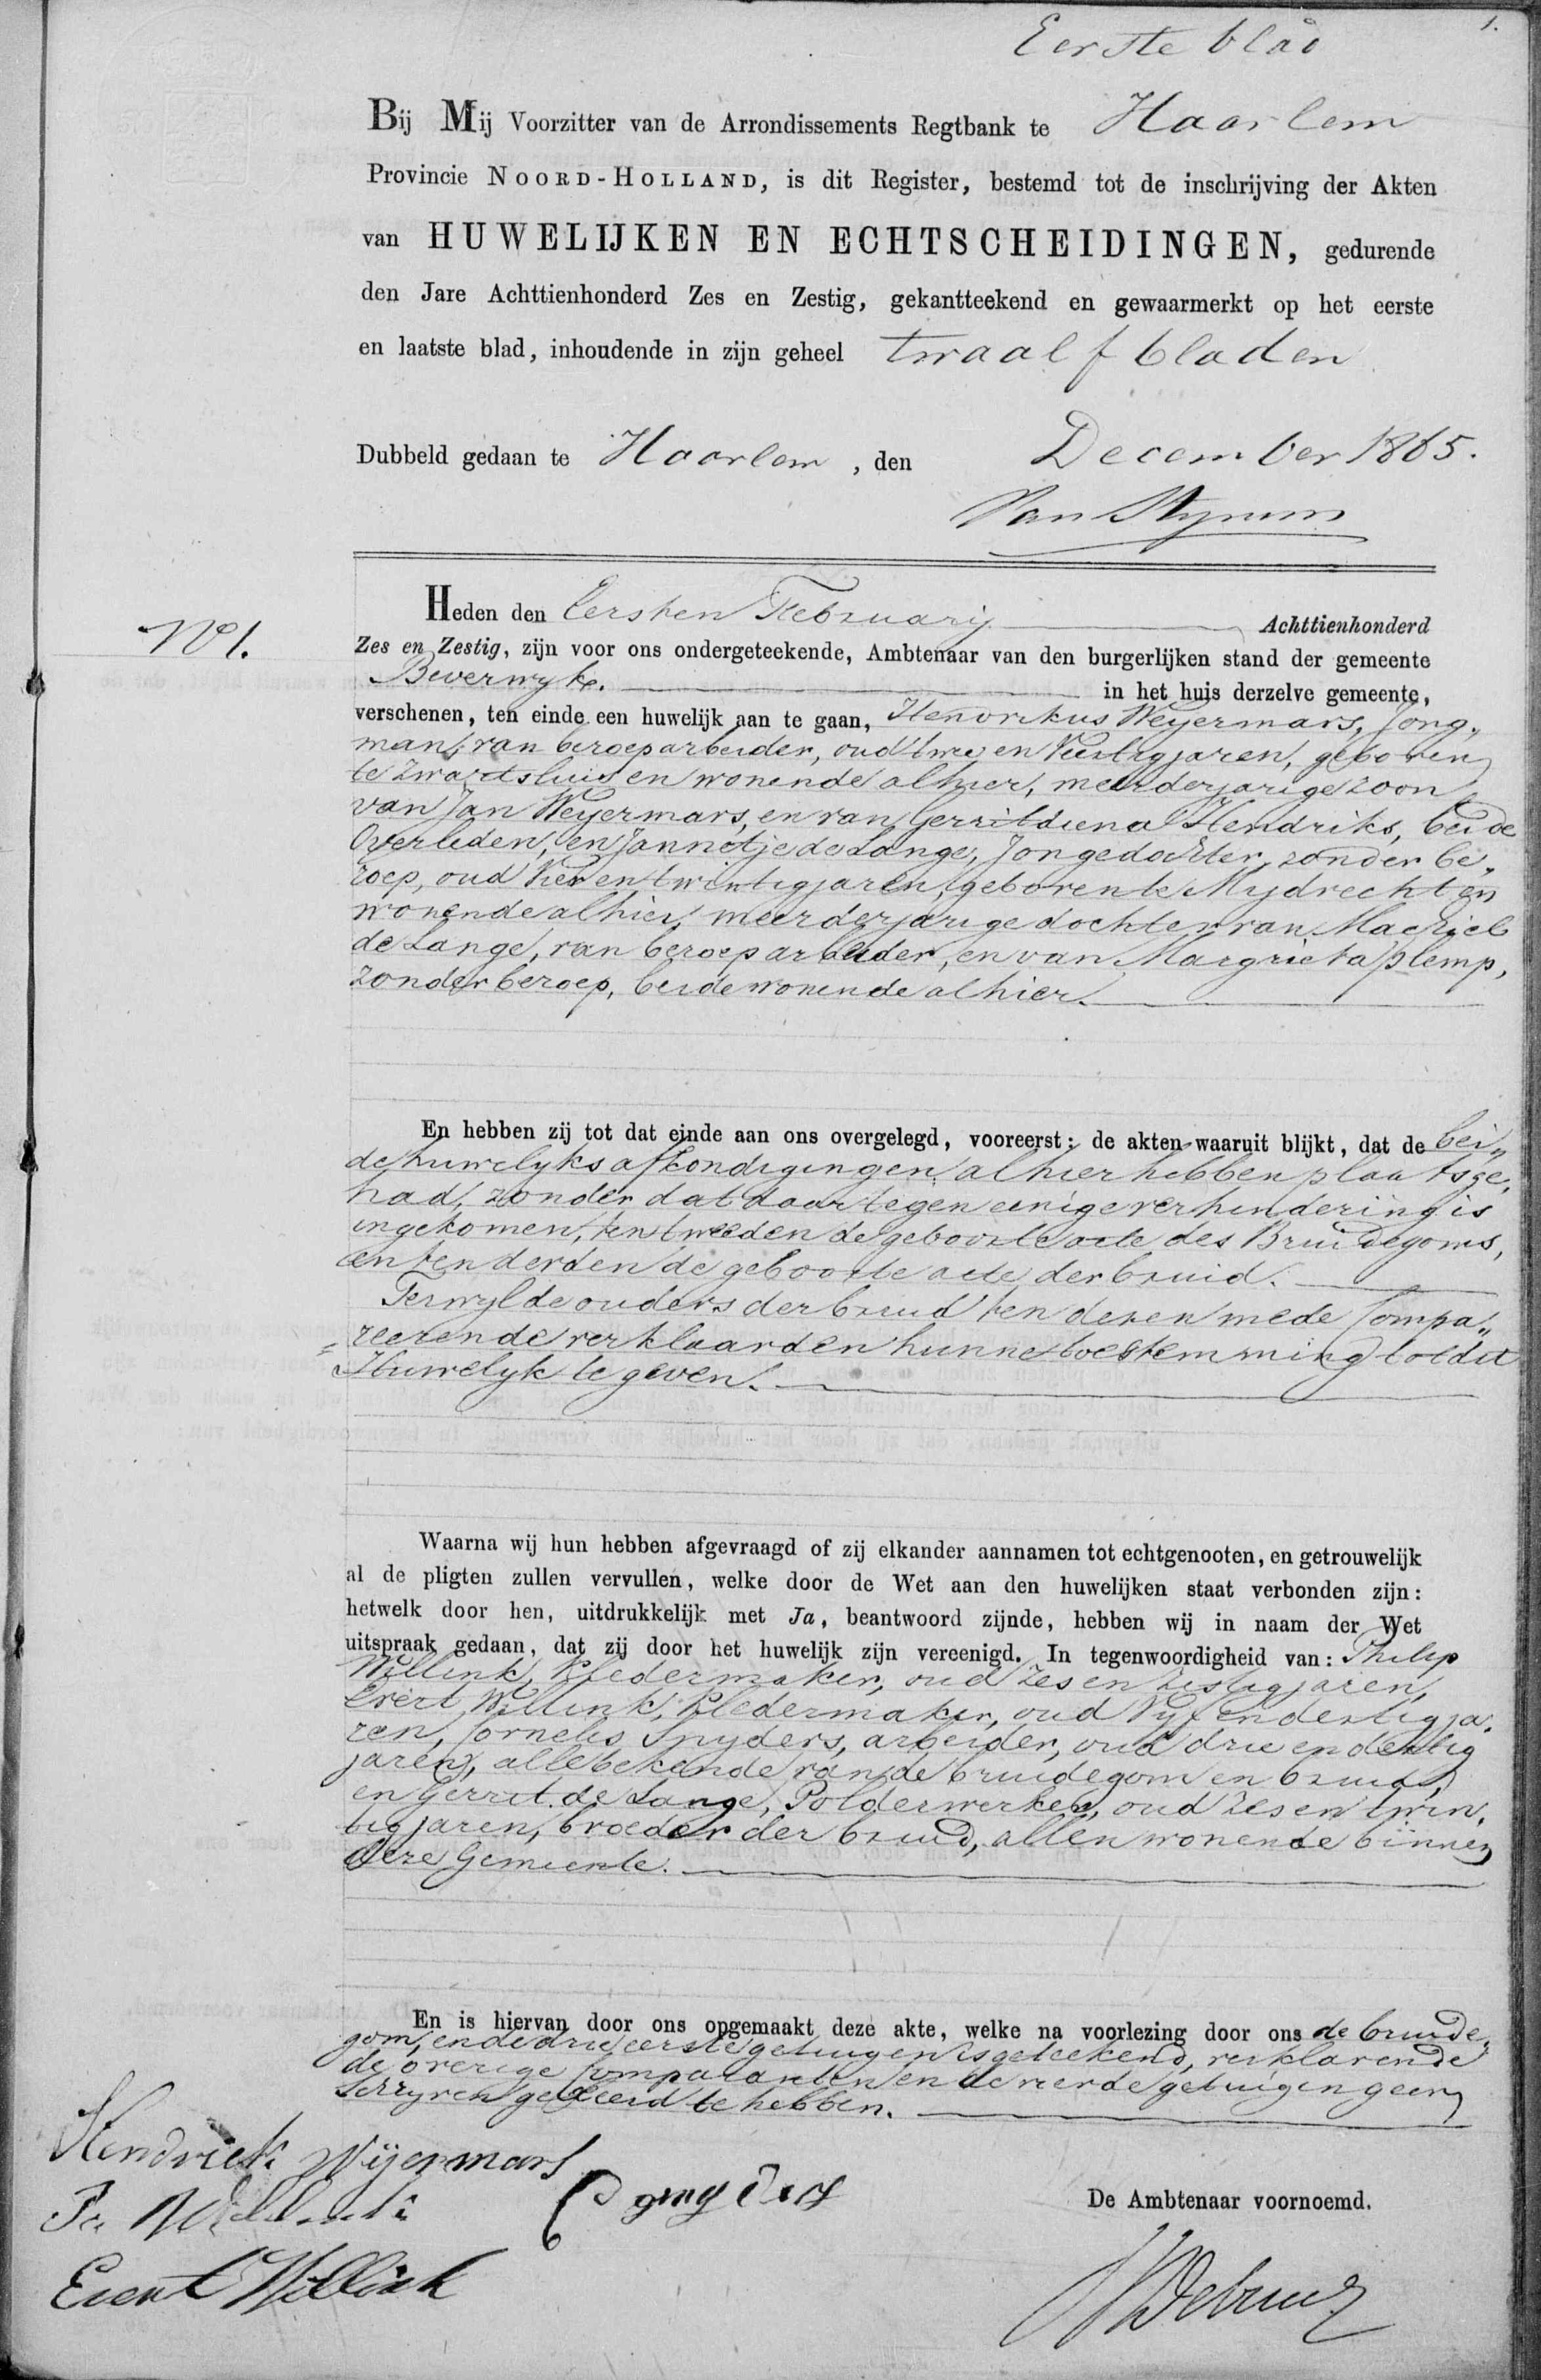 1.
Eerste blad
Bij Mij Voorzitter van de Arrondissements Regtbank te Haarlem
Provincie NOORD-HOLLAND, is dit Register, bestemd tot de inschrijving der Akten
van HUWELIJKEN EN ECHTSCHEIDINGEN, gedurende
den Jare Achttienhonderd Zes en Zestig, gekantteekend en gewaarmerkt op het eerste
en laatste blad, inhoudende in zijn geheel twaalf bladen
Dubbeld gedaan te Haarlem, den December 1865.
Van Styrum
No 1.
Heden den Eersten February Achttienhonderd
Zes en Zestig, zijn voor ons ondergeteekende, Ambtenaar van den burgerlijken stand der gemeente
Beverwyk. in het huis derzelve gemeente,
verschenen, ten einde een huwelijk aan te gaan, Hendrikus Weyermars, Jong„
man, van beroep arbeider, oud twee en Veertig jaren, geboren
te Zwartsluis en wonende alhier, meerderjarige zoon
van Jan Weyermars, en van Gerritdiena Hendriks, beide
Overleden, en Jannetje de Lange, Jongedochter, zonder be„
roep, oud Vier en twintig jaren, geboren te Mydrecht en
wonende alhier, meerderjarige dochter van Machiel
de Lange, van beroep arbeider, en van Margrieta Plemp,
zonder beroep, beide wonende alhier.
En hebben zij tot dat einde aan ons overgelegd, vooreerst: de akten waaruit blijkt, dat de bei„
de huwelyks afkondigingen alhier hebben plaats ge„
had, zonder dat daar tegen eenige verhindering is
ingekomen, ten tweeden de geboorte acte des Bruidegoms,
en ten derden de geboorte acte der bruid.
Terwyl de ouders der bruid ten dezen mede Compa„
reerende verklaarden hunne toestemming tot dit
Huwelyk te geven.
Waarna wij hun hebben afgevraagd of zij elkander aannamen tot echtgenooten, en getrouwelijk
al de pligten zullen vervullen, welke door de Wet aan den huwelijken staat verbonden zijn:
hetwelk door hen, uitdrukkelijk met Ja, beantwoord zijnde, hebben wij in naam der Wet
uitspraak gedaan, dat zij door het huwelijk zijn vereenigd. In tegenwoordigheid van: Philip
Willink, Kledermaker, oud zes en zestig jaren,
Evert Willink, Kledermaker, oud Vyf en dertig ja„
ren, Cornelis Snyders, arbeider, oud drie en dertig
jaren, alle bekende van de bruidegom en bruid,
en Gerrit de Lange, Polderwerker, oud zes en twin„
tig jaren, broeder der bruid, allen wonende binnen
deze Gemeente.
En is hiervan door ons opgemaakt deze akte, welke na voorlezing door ons de bruide„
gom, en de drie eerste getuigen is geteekend, verklarende
de overige Comparanten en de vierde getuigen geen
Schryven geleerd te hebben.
Hendriek Wijermars
Evert Willink
De Ambtenaar voornoemd.